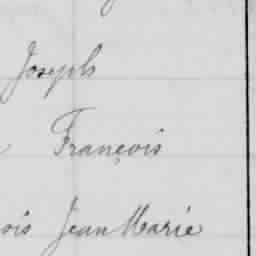 Joseph
François
ois Jean Marie